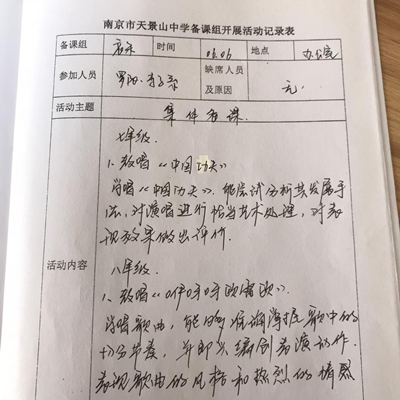 南京市天景山中学备课组开展活动记录表
备课组 音乐 时间 03.06 地点 办公室
参加人员 罗阳、 缺席人员及原因 无
活动主题 集体备课
活动内容
七年级.
1、教唱《中国功夫》
背唱《中国功夫》.能尝试分析其发展手
法,对演唱进行恰当艺术处理,对表
现效果做出评价.
八年级.
1、教唱《咿呀呀欧雷欧》.
背唱歌曲,能够准确掌握歌中的
切分节奏,并即兴编创表演动作.
表现歌曲的风格和热烈的情感